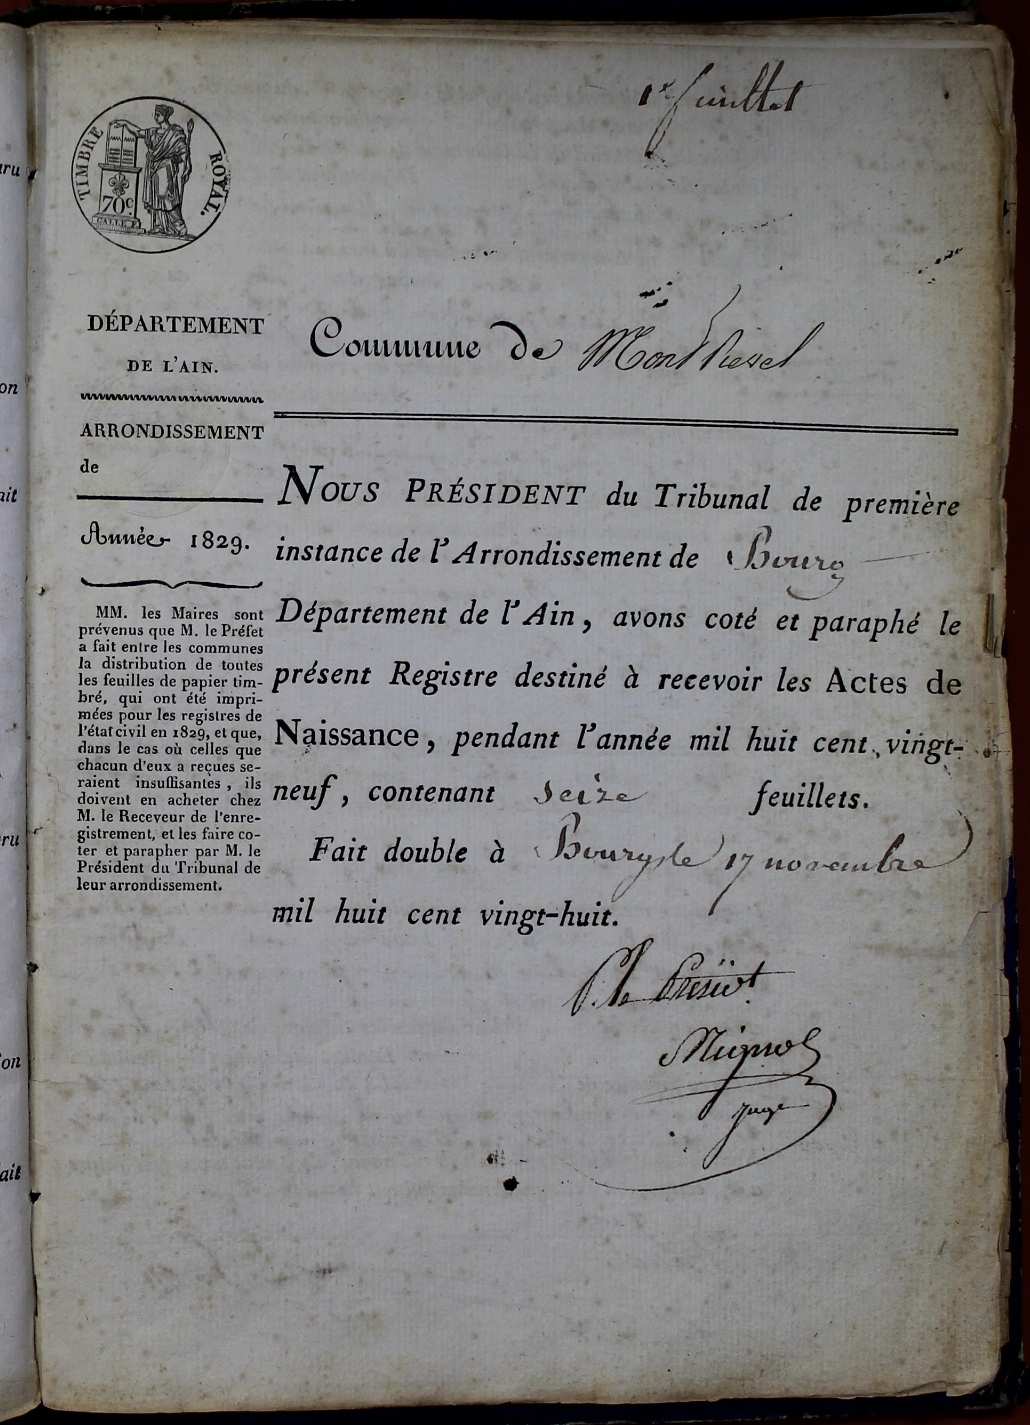 1er feuillet
TIMBRE ROYAL.
70c
DÉPARTEMENT
DE L'AIN.
ARRONDISSEMENT
de
Année 1829.
MM. les Maires sont
prévenus que M. le Préfet
a fait entre les communes
la distribution de toutes
les feuilles de papier tim-
bré, qui ont été impri-
mées pour les registres de
l'état civil en 1829, et que,
dans le cas où celles que
chacun d'eux a reçues se-
raient insuffisantes, ils
doivent en acheter chez
M. le Receveur de l'enre-
gistrement, et les faire co-
ter et parapher par M. le
Président du Tribunal de
leur arrondissement.
Commune de Montluel
NOUS PRÉSIDENT du Tribunal de première
instance de l'Arrondissement de Bourg
Département de l'Ain, avons coté et paraphé le
présent Registre destiné à recevoir les Actes de
Naissance, pendant l'année mil huit cent vingt-
neuf, contenant seize feuillets.
Fait double à Bourg le 17 novembre
mil huit cent vingt-huit.
P. le Présidt
juge